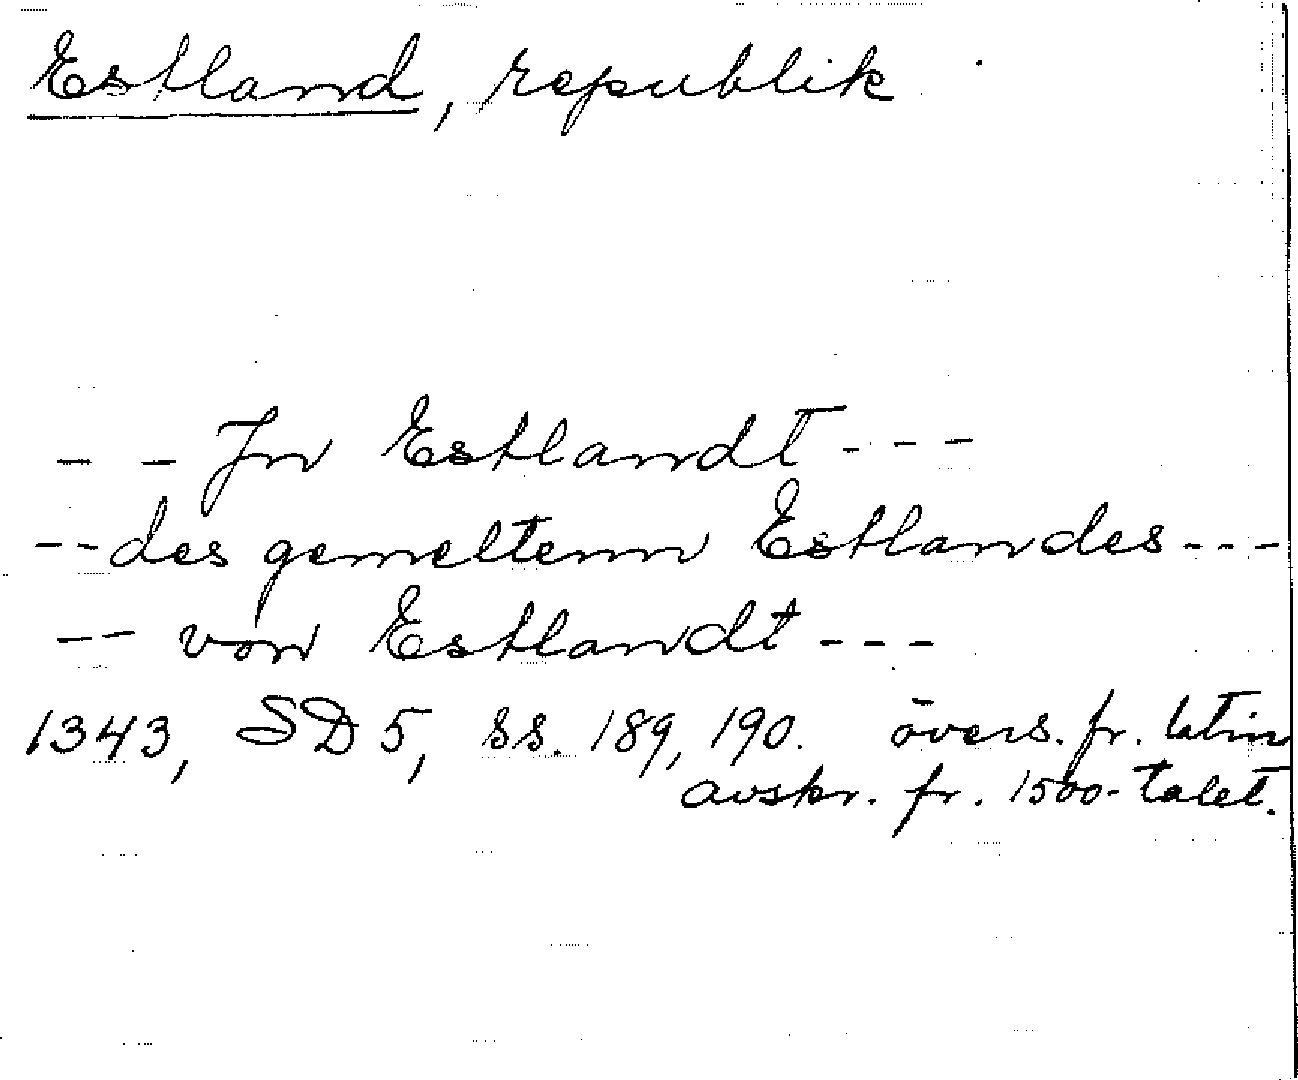 Estland, republik
- - Jn Estlandt - - -
- - des gemeltenn Estlandes - - -
- - von Estlandt - - -
1343, SD 5, ss. 189, 190. övers. fr. latin
avskr. fr. 1500-talet.